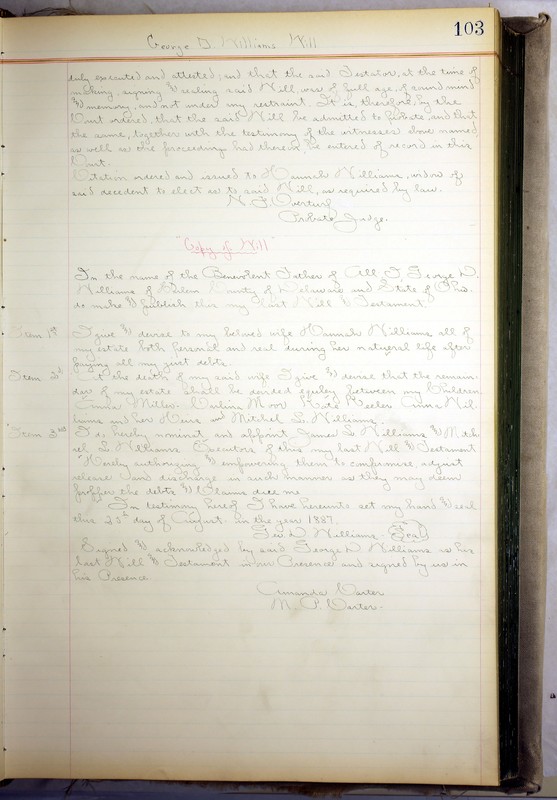 103
George D. Williams Will
duly executed and attested; and that the said Testator, at the time of
making, signing & sealing said Will, was of full age, of sound mind
& memory, and not under any restraint. It is therefore, by the
Court ordered, that the said Will be admitted to Probate, and that
the same, together with the testimony of the witnesses above named
as well as the proceedings had therein, be entered of record in this
Court.
Citation ordered and issued to Hannah Williams, widow of
said decedent to elect as to said Will, as required by law.
N. F. Overturf
Probate Judge.
"Copy of Will"
In the name of the Benevolent Father of All. I George D.
Williams of Galena County of Delaware and State of Ohio.
do make & publish this my Last Will & Testament.
Item 1st I give & devise to my beloved wife Hannah Williams all of
my estate both personal and real during her natural life after
paying all my just debts.
Item 2d At the death of my said wife I give & devise that the remain-
der of my estate shall be devided equeley between my Children
Moor Kate Keeler Wil-
liams and her Heirs and Mitchel L. Williams.
Item 3rd I do hereby nominate and appoint James L. Williams & Mitch-
el L. Williams Executors of this my last Will & Testament
Hereby authorizing & empowering them to compromise, adjust
release and discharge in such manner as they may deem
the debts & Claims due me
In testimony hereof I have hereunto set my hand & seal
this 25th day of August. in the year 1887.
Geo D. Williams. Seal
Signed & acknowledged by said George D Williams as his
last Will & Testament in our Presence and signed by us in
his Presence
Amanda Carter
M. P. Carter.